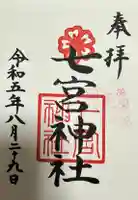 奉拝
七宮神社
令和五年八月二十九日